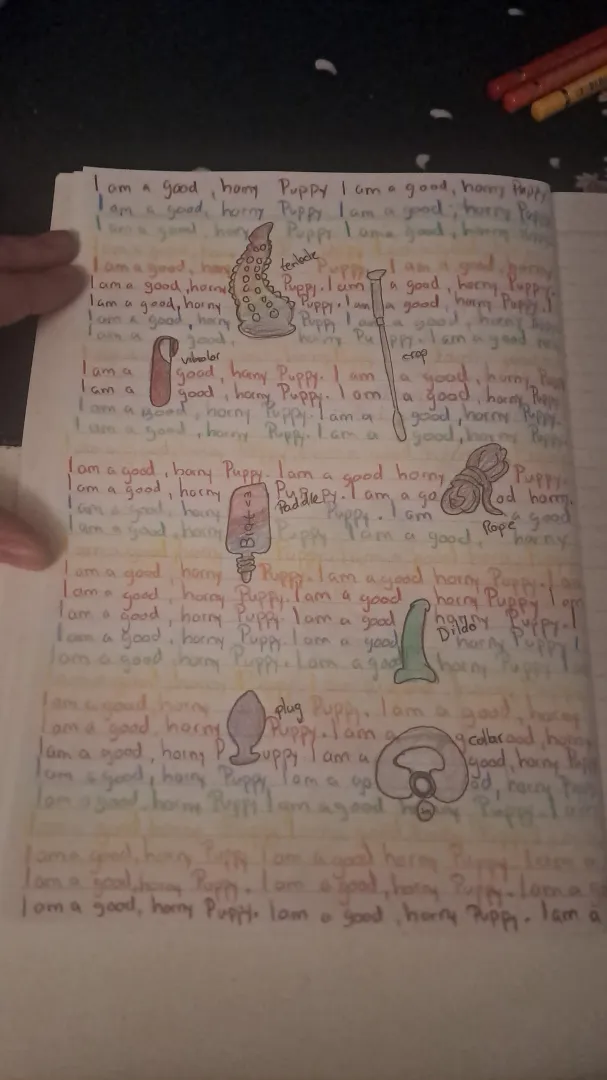 I am a good, horny Puppy I am a good, horny Puppy
I am a good, horny Puppy I am a good, horny Puppy
I am a good, horny Puppy I am a good, horny
I am a good, horny Puppy. I am a good, horny
tentacle
I am a good, horny Puppy. I am a good, horny Puppy.
I am a good, horny Puppy. I am a good, horny Puppy. I
I am a good, horny Puppy I am a good, horny
I am a good, horny Puppy. I am a good
vibrator
crop
I am a good, horny Puppy. I am a good, horny Puppy
I am a good, horny Puppy. I am a good, horny Puppy
I am a good, horny Puppy. I am a good, horny Puppy.
I am a good, horny Puppy. I am a good, horny Puppy
I am a good, horny Puppy. I am a good horny Puppy
I am a good, horny Puppy. I am a good horny.
Paddle
I am a good, horny Puppy. I am a good
Rope
I am a good, horny Puppy I am a good, horny
I am a good, horny Puppy. I am a good horny Puppy. I am
I am a good, horny Puppy. I am a good horny Puppy I am
I am a good, horny Puppy. I am a good horny Puppy. I
Dildo
I am a good, horny Puppy. I am a good horny Puppy I
I am a good, horny Puppy. I am a good horny Puppy I
I am a good, horny Puppy. I am a good, horny
plug
I am a good, horny Puppy. I am a good, horny
collar
I am a good, horny Puppy I am a good, horny Puppy
I am a good, horny Puppy. I am a good, horny
I am a good, horny Puppy I am a good horny Puppy. I am
I am a good, horny Puppy I am a good horny Puppy. I am a
I am a good, horny Puppy. I am a good, horny Puppy. I am a
I am a good, horny Puppy. I am a good, horny Puppy. I am a